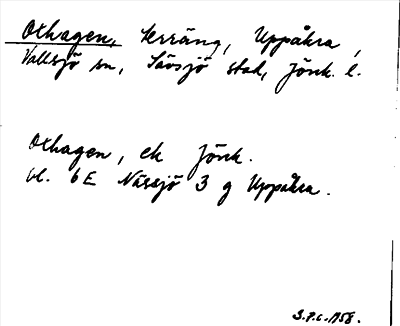 Oxhagen, terräng, Uppåkra,
Vallsjö sn, Sävsjö stad, Jönk. l.
Oxhagen, ek Jönk.
bl. 6E Nässjö 3 g Uppåkra.